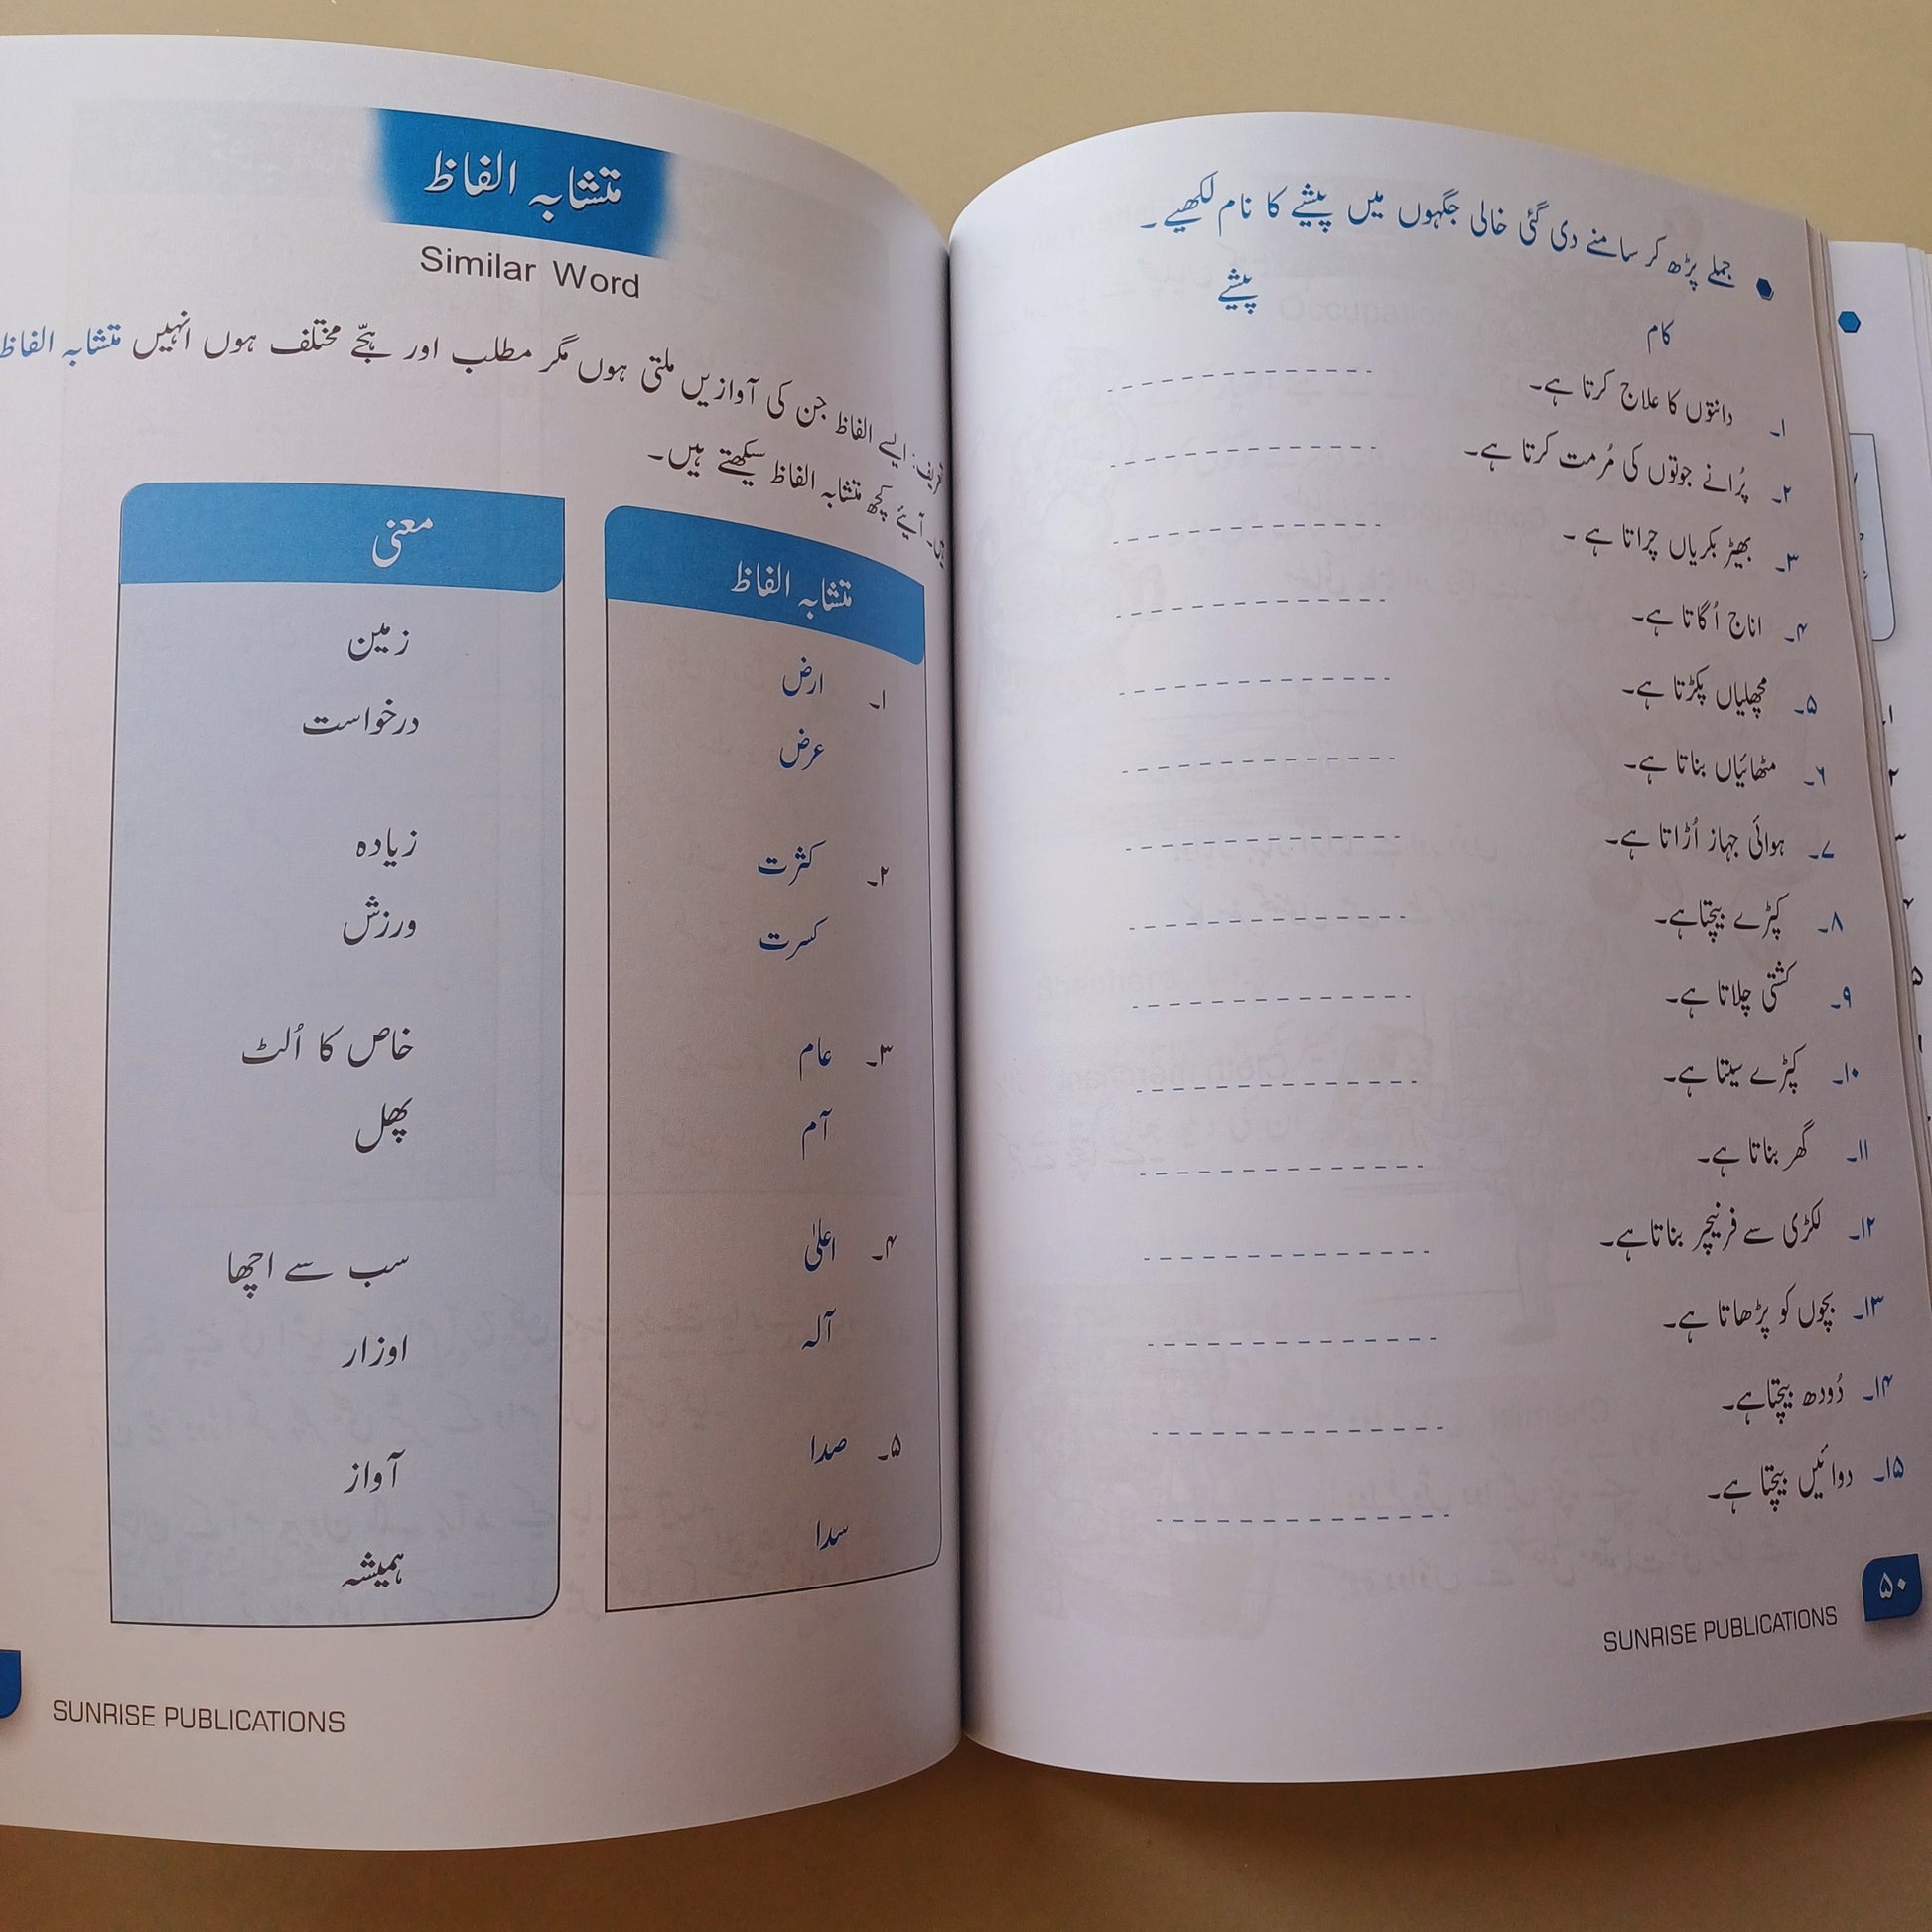 جملے پڑھ کر سامنے دی گئی خالی جگہوں میں پیشے کا نام لکھیے۔
کام پیشے
۱۔ دانتوں کا علاج کرتا ہے۔
۲۔ پُرانے جوتوں کی مُرمت کرتا ہے۔
۳۔ بھیڑ بکریاں چراتا ہے ۔
۴۔ اناج اُگاتا ہے۔
۵۔ مچھلیاں پکڑتا ہے۔
۶۔ مٹھائیاں بناتا ہے۔
۷۔ ہوائی جہاز اُڑاتا ہے۔
۸۔ کپڑے بیچتاہے۔
۹۔ کشتی چلاتا ہے۔
۱۰۔ کپڑے سیتا ہے۔
۱۱۔ گھر بناتا ہے۔
۱۲۔ لکڑی سے فرنیچر بناتاہے۔
۱۳۔ بچوں کو پڑھاتا ہے۔
۱۴۔ دُودھ بیچتاہے۔
۱۵۔ دوائیں بیچتا ہے۔
۵۰
SUNRISE PUBLICATIONS
متشابہ الفاظ
Similar Word
تعریف: ایسے الفاظ جن کی آوازیں ملتی ہوں مگر مطلب اور ہجّے مختلف ہوں انہیں متشابہ الفاظ
آیئے کچھ متشابہ الفاظ سیکھتے ہیں۔
متشابہ الفاظ معنی
۱۔ ارض زمین
عرض درخواست
۲۔ کثرت زیادہ
کسرت ورزش
۳۔ عام خاص کا اُلٹ
آم پھل
۴۔ اعلیٰ سب سے اچھا
آلہ اوزار
۵۔ صدا آواز
سدا ہمیشہ
SUNRISE PUBLICATIONS